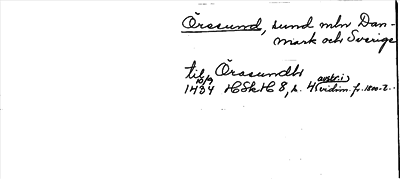 Örssund, sund mln Dan-
mark och Sverige
til Örssundh
10/9 avskr. i
1484 HSkH 8, s. 4 (vidim. fr. 1500-t.